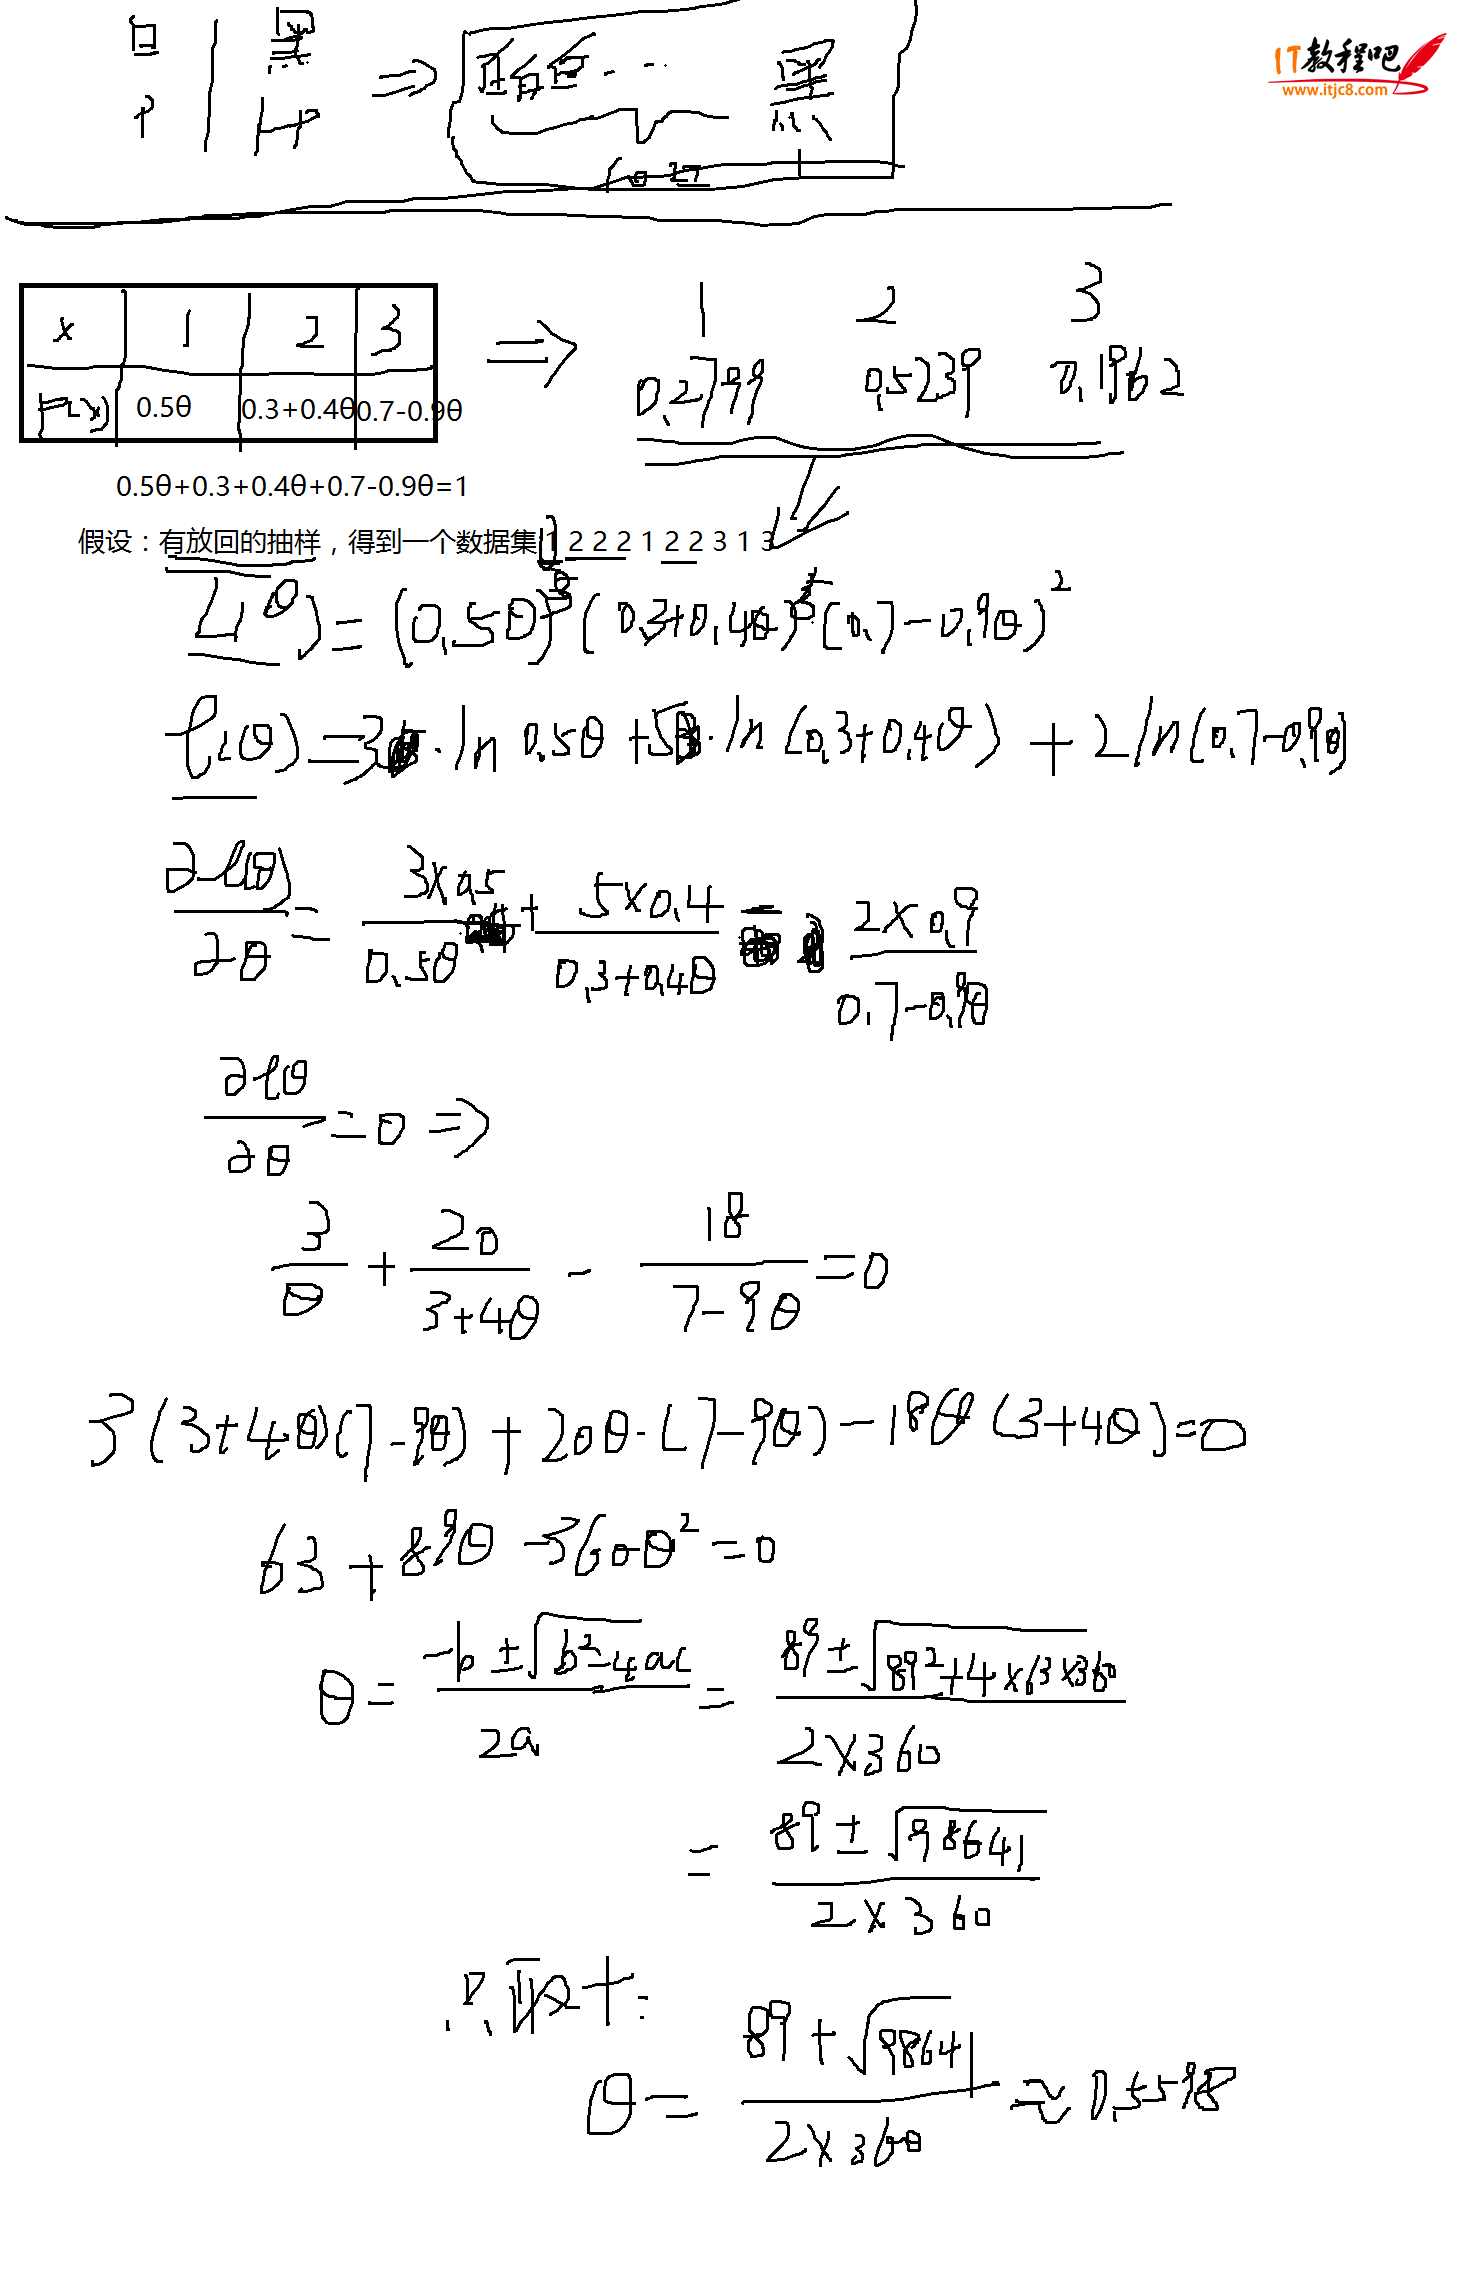 IT教程吧
www.itjc8.com
白 黑 ⇒ 白白白… 黑
P 1-P
x 1 2 3 ⇒ 1 2 3
P(x) 0.5θ 0.3+0.4θ 0.7-0.9θ 0.2799 0.5239 0.1962
0.5θ+0.3+0.4θ+0.7-0.9θ=1
假设：有放回的抽样，得到一个数据集 1 2 2 2 1 2 2 3 1 3
L(θ) = (0.5θ)³ (0.3+0.4θ)⁵ (0.7-0.9θ)²
ℓ(θ) = 3·ln 0.5θ + 5·ln(0.3+0.4θ) + 2ln(0.7-0.9θ)
∂ℓ(θ)/∂θ = 3×0.5/0.5θ + 5×0.4/0.3+0.4θ - 2×0.9/0.7-0.9θ
∂ℓθ/∂θ = 0 ⇒
3/θ + 20/3+4θ - 18/7-9θ = 0
3(3+4θ)(7-9θ) + 20θ·(7-9θ) - 18θ(3+4θ) = 0
63 + 89θ - 360θ² = 0
θ = -b ± √b²-4ac / 2a = 89 ± √89²+4×63×360 / 2×360
= 89 ± √98641 / 2×360
∴取+:
θ = 89 + √98641 / 2×360 ≈ 0.5598